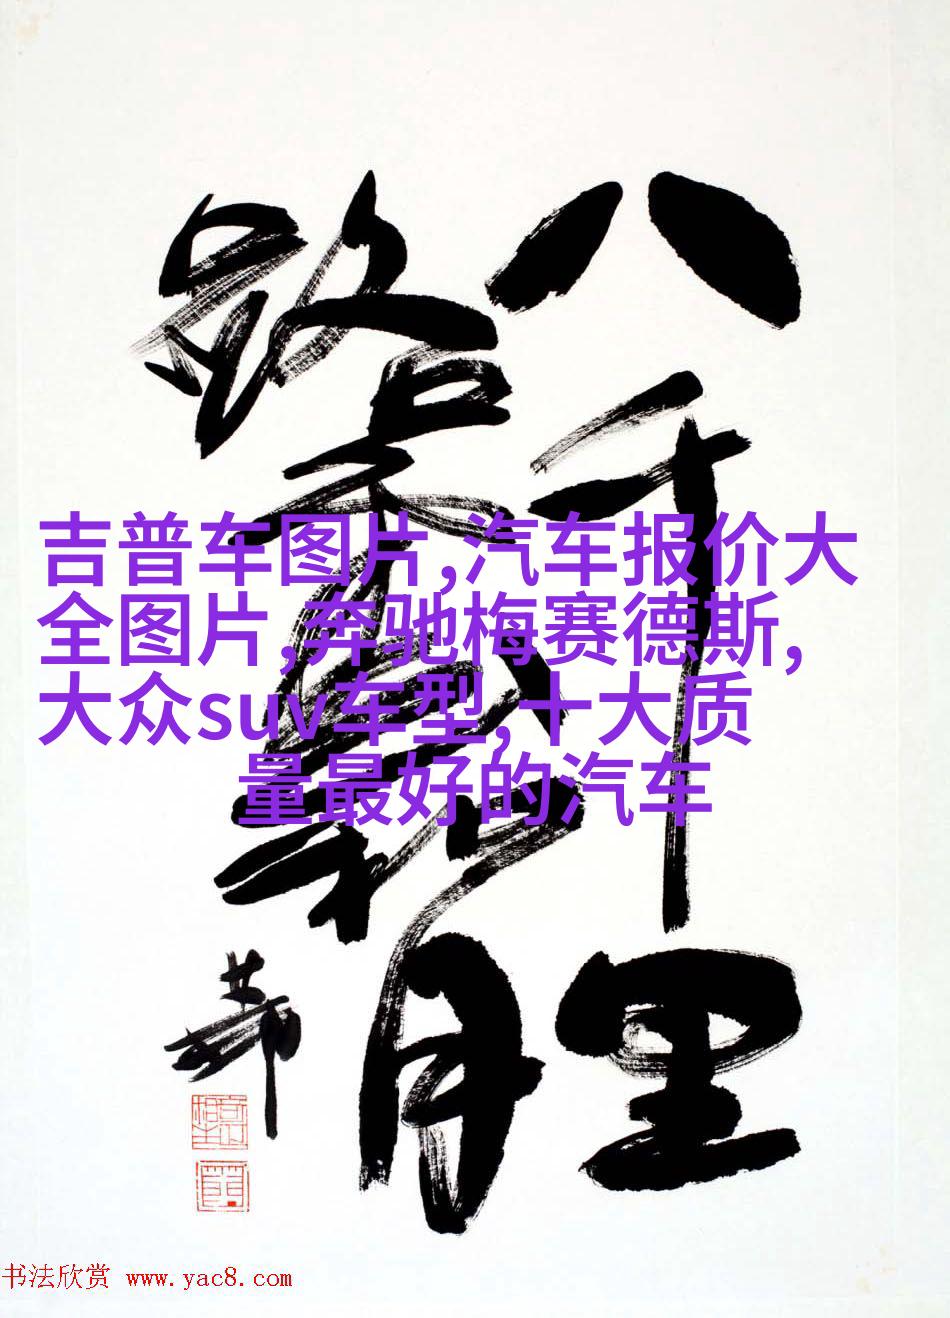 八千里
路云和月
吉普车图片,汽车报价大
全图片,奔驰梅赛德斯,
大众suv车型,十大质
量最好的汽车
书法欣赏 www.yac8.com